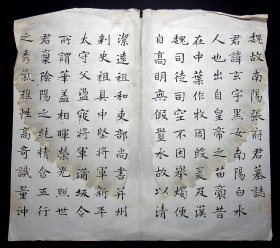 魏故南陽張府君墓誌
君諱玄字黑女南陽白水
人也出自皇帝之苗裔昔
在中葉作牧周殷爰及漢
魏司徒司空不因舉燭便
自高明無假置水故以清
潔遠祖和吏部尚書并州
刺史祖具中堅將軍新平
太守父盪寇將軍蒲坂令
所謂華蓋相暉榮光照世
君稟陰陽之純精含五行
之秀氣雅性高奇識量沖